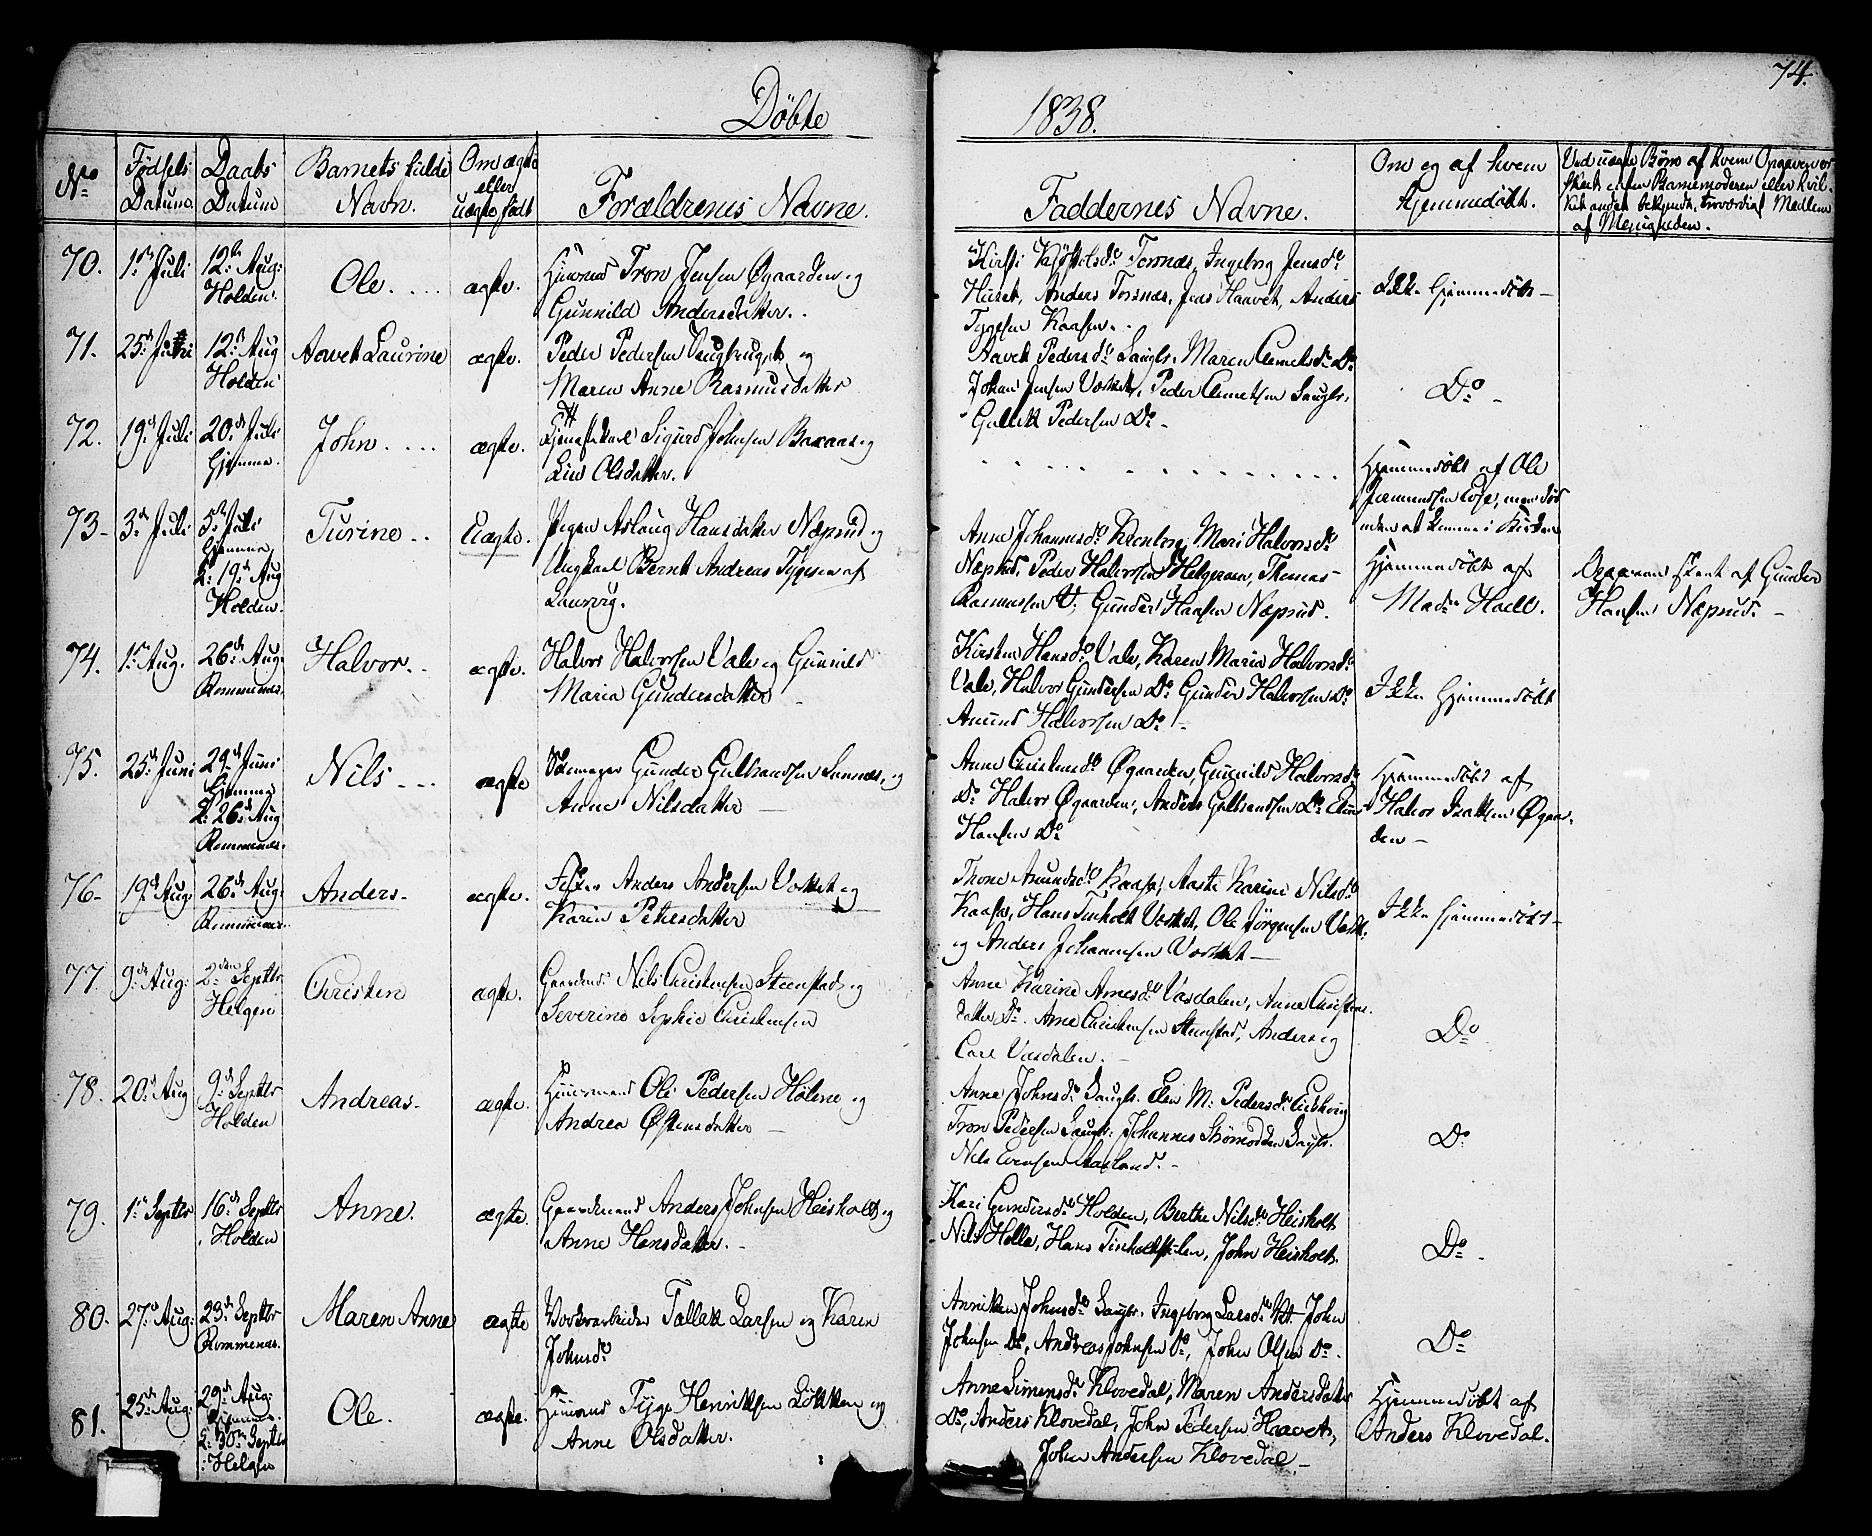 74.
Döbte 1838.
No
Födsels Datum.
Daabs Datum
Barnets fulde Navn.
Om ægte eller uægte födt
Forældrenes Navne.
Faddernes Navne.
Om og af hvem hjemmedöbt.
Ved uægte Börn af hvem Opgaven er
skeet enten Barnemoderen eller hvil-
ket andet bekjendt, troværdigt Medlem
af Menigheden.
70.
1ste Juli
12te Aug:
Holden.
Ole.
ægte.
Huusmd Tron Jensen Øgaarden og
Gunnild Andersdatter.
Kirsti Kjöstelsdr Torsnæs, Ingeborg Jensdr
Huset, Anders Torsnæs, Jens Haavet, Anders
Tygesen Kaasen.
Ikke Hjemmedöbt
71.
25de
12te Aug
Holden
Laurine
ægte.
Peder Pedersen og
Maren Anne Rasmusdatter
Pedersdr Saugbr. Maren Clemetsdr Do
Johan Jensen Værket, Peder Clemetsen Saugbr.
Gullek Pedersen Do
Do
72.
19de Juli
20de Juli
Hjemme.
John.
ægte.
Sigurd Johnsen og
Liv Olsdatter.
Hjemmedöbt af Ole
men död
uden at komme i Kirken
73
3de Juli
5te Juli
Hjemme,
2: 19de Aug
Holden.
Turine
Uægte.
Pigen Aslaug Hansdatter Næprud og
Ungkarl Bernt Andreas Tygesen af
Laurvig.
Anne Johannesdr Mari Halvorsdr
Næprud, Peder Halvorsen Helgeraen, Thomas
Rasmussen Gunder Hansen Næprud.
Hjemmedöbt af
Mad: Hoell.
Opgaven skeet af Gunder
Hansen Næprud.
74.
1ste Aug.
26de Aug:
Rommenæs.
Halvor.
ægte.
Halvor Halvorsen Vale og Gunnild
Maria Gundersdatter
Kirsten Hansdr Vale, Karen Maria Halvorsdr
Vale, Halvor Gundersen Do Gunder Halvorsen Do
Amund Halvorsen Do
Ikke Hjemmedöbt
75.
25de Juni
29de Juni
Hjemme
2: 26de Aug
Rommenæs.
Nils
ægte
Gunder Gulbrandsen og
Anne Nilsdatter
Anne Christensdr Øgaarden, Gunnild Halvorsdr
Do Halvor Øgaarden, Anders Gulbrandsen Do
Hansen Do
Hjemmedöbt af
Halvor Isaksen Øgaar-
den
76
19de Aug:
26de Aug:
Rommenæs.
Anders.
ægte.
Anders Andersen Værket og
Karin Petersdatter
Thone Amundsdr Kaasa, Aaste Karine Nilsdr
Kaasa, Hans Tinholt Værket, Ole Jörgensen Værk:
og Anders Johannesen Værket
Ikke hjemmedöbt
77
9de Aug:
2den Septbr
Helgen
Christen
ægte.
Gaardmd Nils Christensen Steenstad og
Severine Sophie Christensen
Anne Karine Arnesdr Vasdalen, Anne Christens-
datter Do. Arne Christensen Steenstad, Anders og
Carl Vasdalen.
Do
78.
20de Aug
9de Septbr
Holden
Andreas.
ægte.
Huusmand Ole Pedersen og
Andrea Østensdatter
Anne Johnsdr Saugbr. Elen M: Pedersdr
Tron Pedersen Saugbr: Johannes Strömodden Saugbr.
Nils Evensen Aasland.
Do
79.
1ste Septbr
16de Septbr
Holden
Anne.
ægte.
Gaardmand Anders Johnsen Heisholt og
Anne Hansdatter.
Kari Gundersdr Holden, Berthe Nilsdr Heisholt
Nils Holla, Hans John Heisholt.
Do
80.
27de Aug:
23de Septbr
Rommenæs.
Maren Anne
ægte
Tollek Larsen og Karen
Johnsdr
Anniken Johnsdr Saugbr. Ingeborg Larsdr John
Johnsen Do, Andreas Johnsen Do, John Olsen Do
Do
81.
25de Aug:
29de Aug:
Hjemme.
2: 30te Septbr
Helgen
Ole.
ægte.
Huusmd Tyge Henriksen Lökken og
Anne Olsdatter.
Anne Simensdr Klovedal, Maren Andersdatter
Do, Anders Klovedal, John Pedersen Haavet,
John Andersen Klovedal
Hjemmedöbt af
Anders Klovedal.